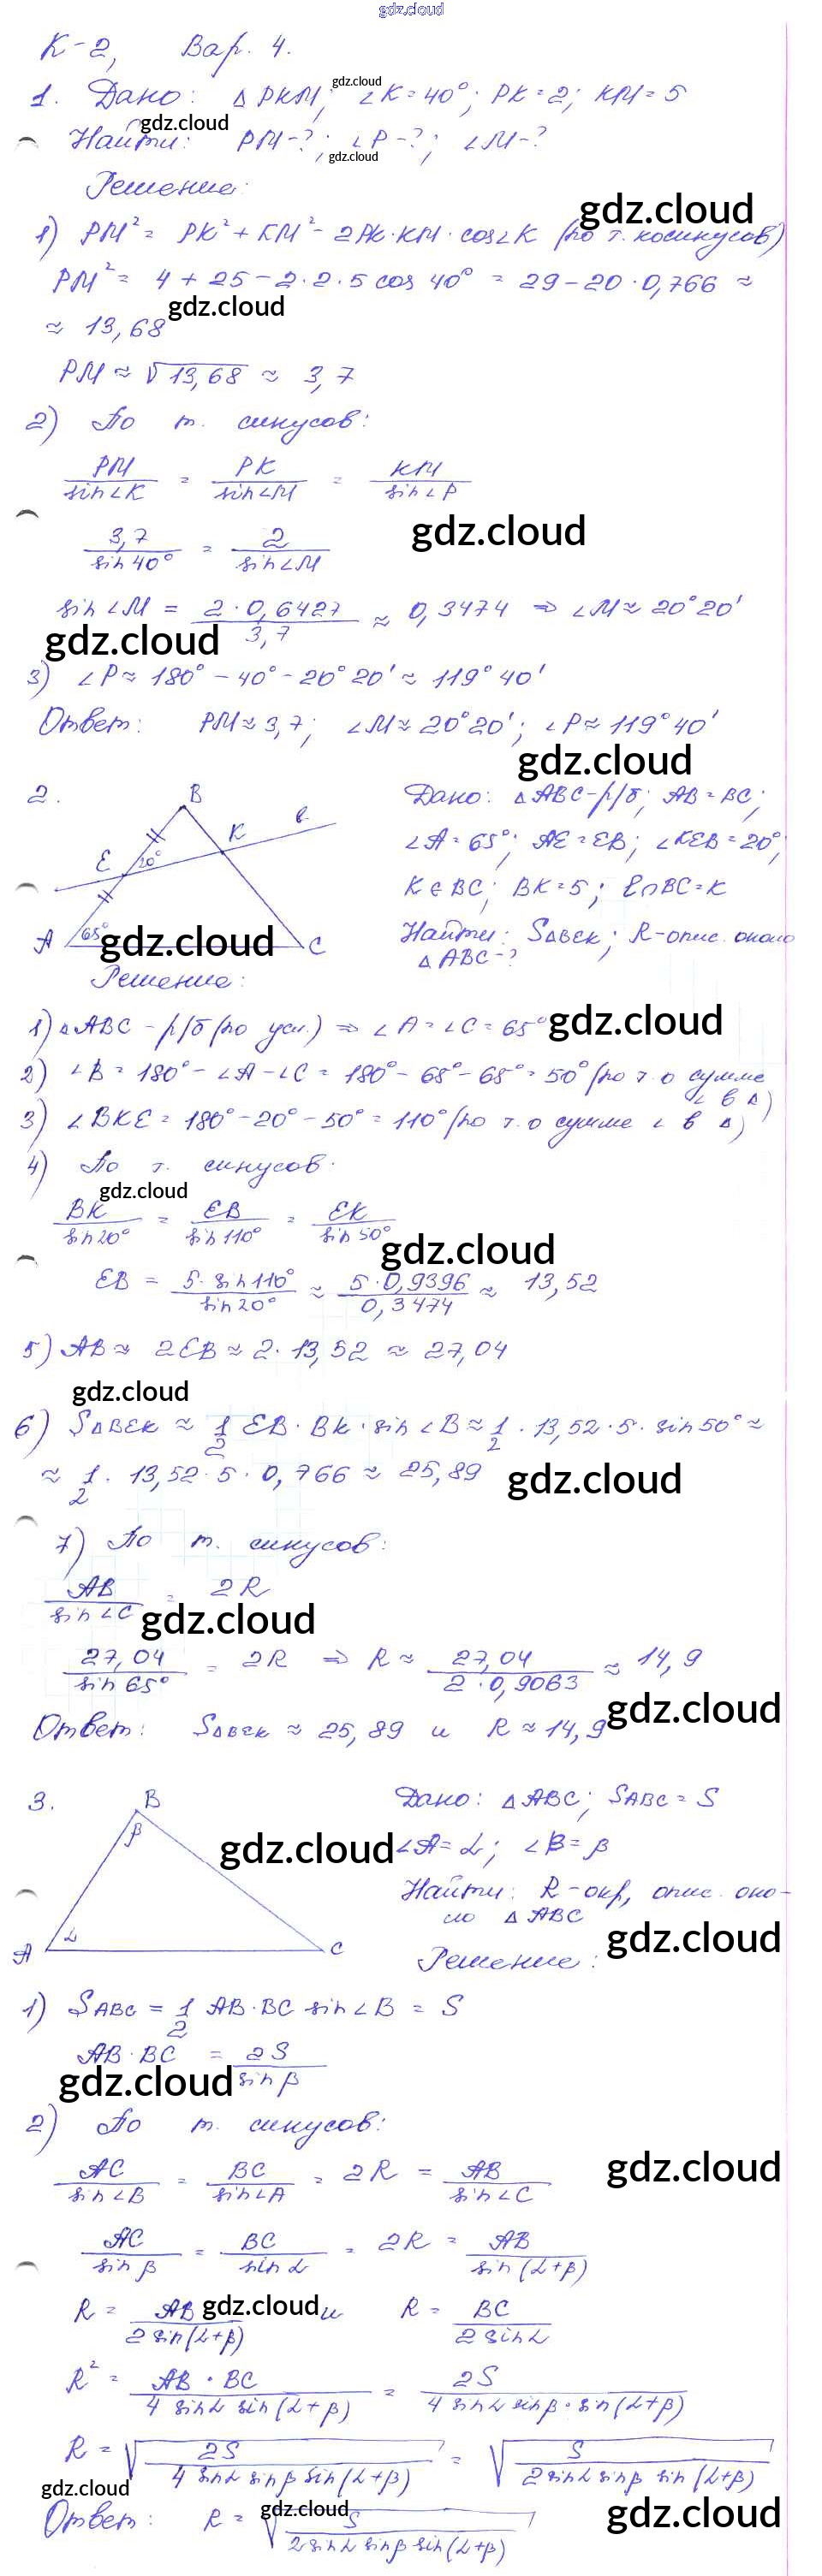 gdz.cloud
К-2, Вар. 4.
1. Дано: △PKM; ∠K=40°; PK=2; KM=5
gdz.cloud
Найти: PM-?; ∠P-?; ∠M-?
gdz.cloud
gdz.cloud
Решение:
gdz.cloud
1) PM² = PK² + KM² - 2PK·KM·cos∠K (по т. косинусов)
PM² = 4 + 25 - 2·2·5 cos 40° = 29 - 20·0,766 ≈
gdz.cloud
≈ 13,68
PM ≈ √13,68 ≈ 3,7
2) По т. синусов:
PM/sin∠K = PK/sin∠M = KM/sin∠P
3,7/sin 40° = 2/sin∠M
gdz.cloud
sin∠M = 2·0,6427/3,7 ≈ 0,3474 ⇒ ∠M ≈ 20°20'
gdz.cloud
3) ∠P ≈ 180° - 40° - 20°20' ≈ 119°40'
Ответ: PM ≈ 3,7; ∠M ≈ 20°20'; ∠P ≈ 119°40'
gdz.cloud
2.
B
K
ℓ
E
20°
A
65°
C
gdz.cloud
Дано: △ABC-р/б; AB=BC;
∠A=65°; AE=EB; ∠KEB=20°;
K∈BC; BK=5; ℓ∩BC=K
Найти: S△BEK; R-опис. около
△ABC-?
Решение:
1) △ABC - р/б (по усл.) ⇒ ∠A=∠C=65°
gdz.cloud
2) ∠B = 180° - ∠A - ∠C = 180° - 65° - 65° = 50° (по т. о сумме
∠ в △)
3) ∠BKE = 180° - 20° - 50° = 110° (по т. о сумме ∠ в △)
4) По т. синусов.
gdz.cloud
BK/sin20° = EB/sin110° = EK/sin50°
gdz.cloud
EB = 5·sin110°/sin20° ≈ 5·0,9396/0,3474 ≈ 13,52
5) AB ≈ 2EB ≈ 2·13,52 ≈ 27,04
gdz.cloud
6) S△BEK ≈ 1/2 EB·BK·sin∠B ≈ 1/2·13,52·5·sin50° ≈
≈ 1/2·13,52·5·0,766 ≈ 25,89
gdz.cloud
7) По т. синусов:
AB/sin∠C = 2R
gdz.cloud
27,04/sin65° = 2R ⇒ R ≈ 27,04/2·0,9063 ≈ 14,9
gdz.cloud
Ответ: S△BEK ≈ 25,89 и R ≈ 14,9
3.
B
β
A
α
C
gdz.cloud
Дано: △ABC; SABC = S
∠A=α; ∠B=β
Найти: R-окр, опис. око-
ло △ABC
gdz.cloud
Решение:
1) SABC = 1/2 AB·BC sin∠B = S
AB·BC = 2S/sin β
gdz.cloud
2) По т. синусов:
AC/sin∠B = BC/sin∠A = 2R = AB/sin∠C
gdz.cloud
AC/sin β = BC/sin α = 2R = AB/sin(α+β)
R = AB/2sin(α+β) и R = BC/2sinα
gdz.cloud
R² = AB·BC/4 sinα sin(α+β) = 2S/4 sinα sinβ·sin(α+β)
R = √2S/4 sinα sinβ sin(α+β) = √S/2sinα sinβ sin(α+β)
gdz.cloud
Ответ: R = √S/2sinα sinβ sin(α+β)
gdz.cloud
gdz.cloud